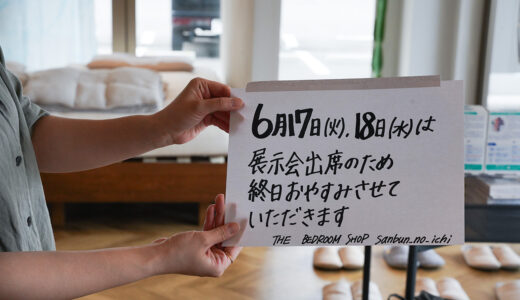 6月17日(火).18日(水)は
展示会出席のため
終日おやすみさせて
いただきます
THE BEDROOM SHOP Sanbun_no_ichi